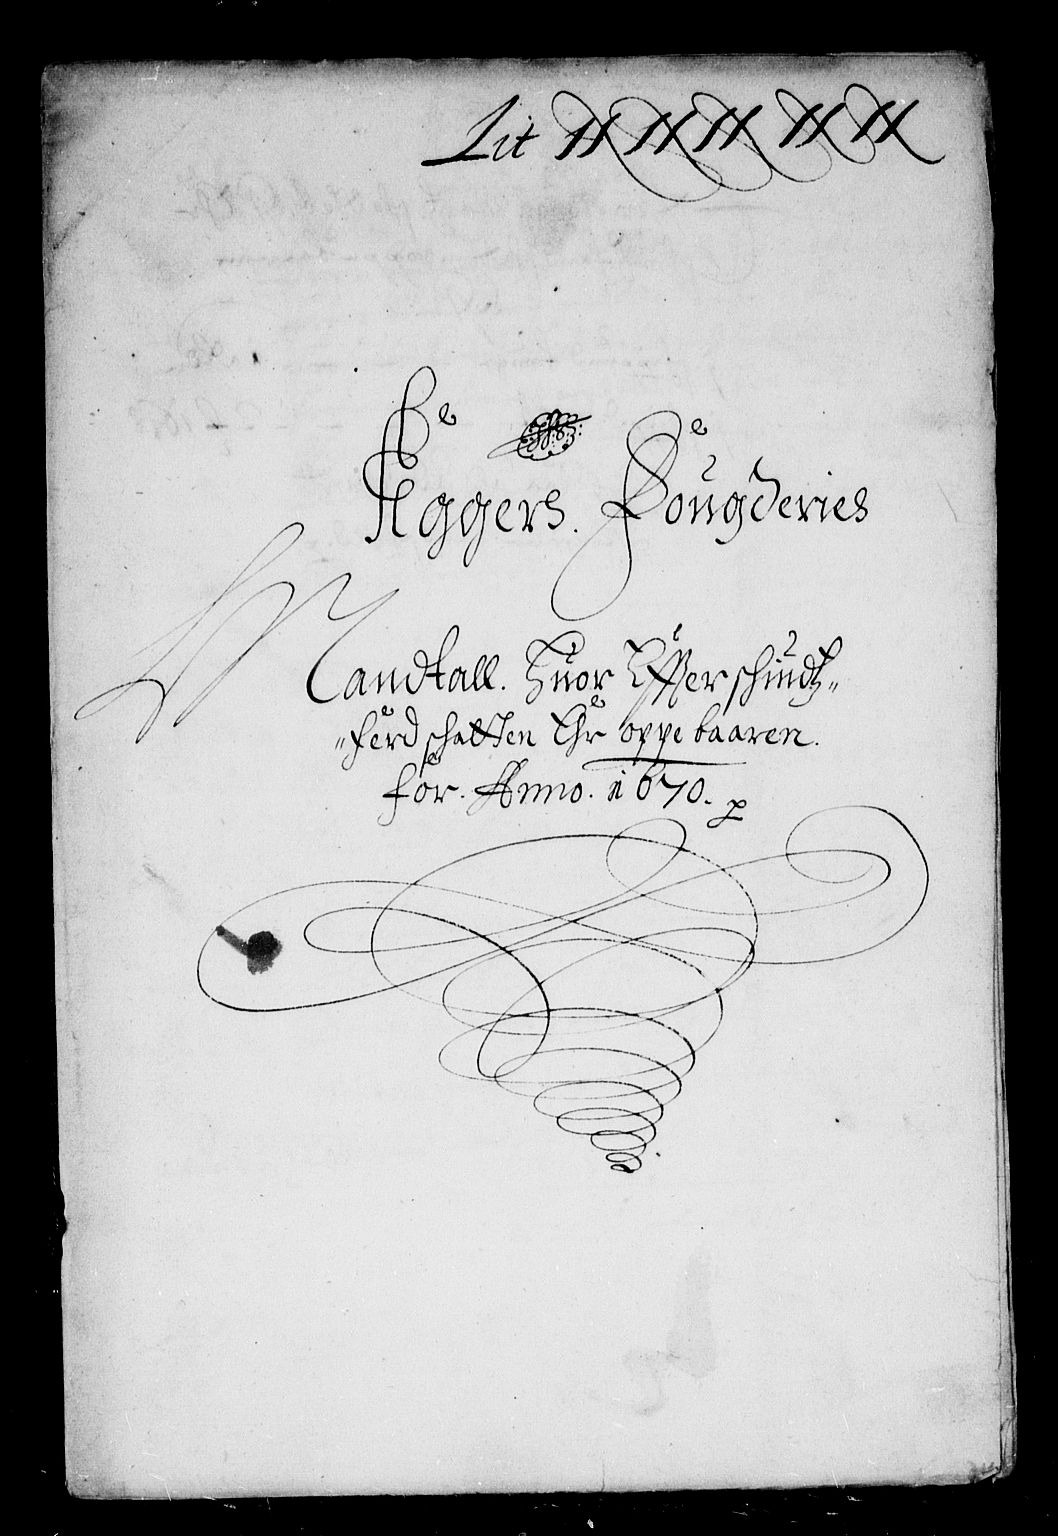 Lit HHHHH
Aggers. Fougderies
Mandtall. Huor Effter schiudtz-
-ferd schatten Ehr oppebaaren.
for. Anno. 1670.